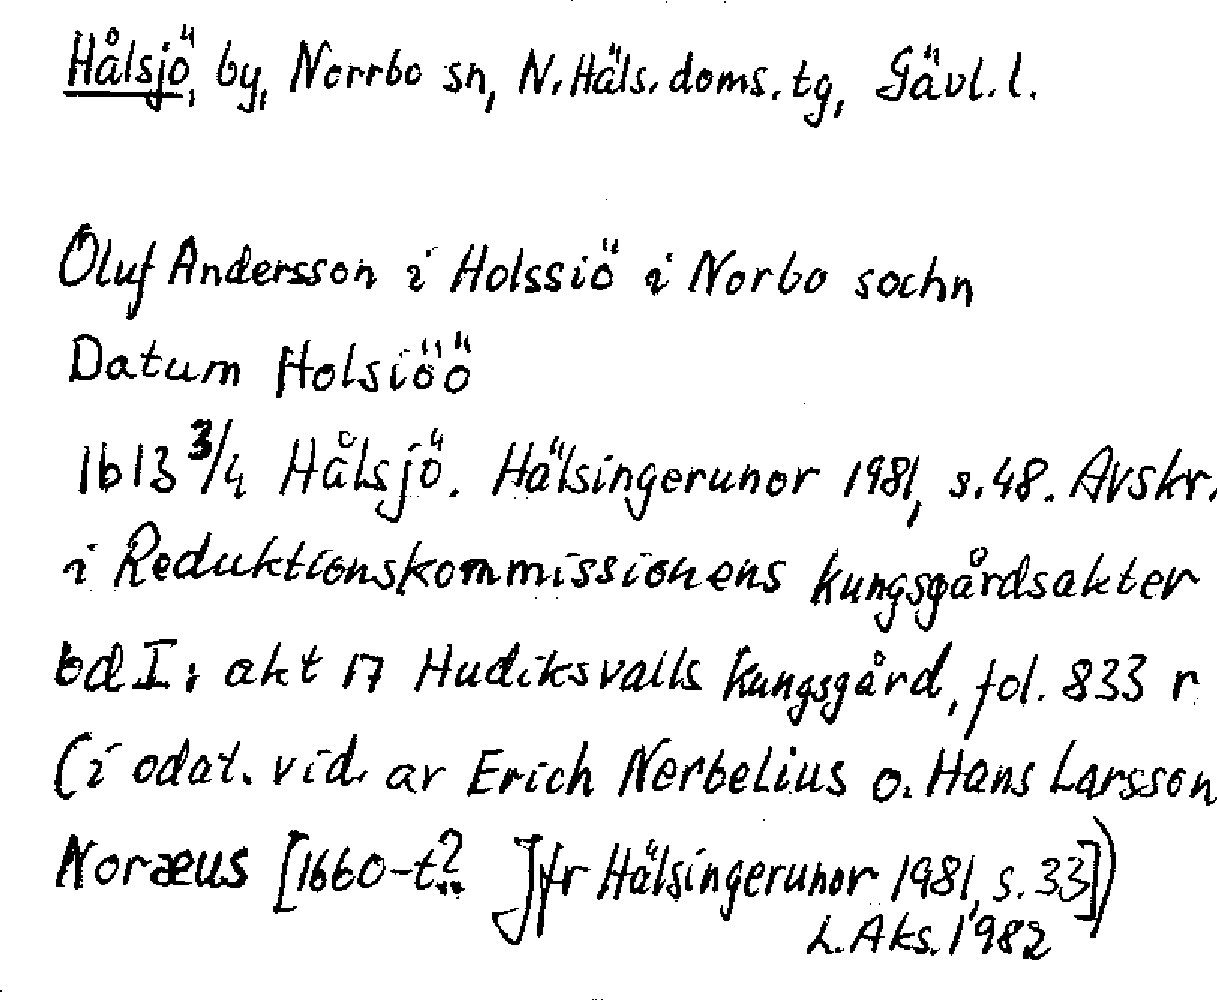 Hålsjö, by, Norrbo sn, N.Häls.doms.tg, Gävl.l.
Oluf Andersson i Holssiö i Norbo sochn
Datum Holsiöö
1613 3/4 Hålsjö. Hälsingerunor 1981, s.48. Avskr.
i Reduktionskommissionens kungsgårdsakter
bd I, akt 17 Hudiksvalls kungsgård, fol. 833 r
(i odat. vid. av Erich Nerbelius o. Hans Larsson
Noræus [1660-t.? Jfr Hälsingerunor 1981, s.33])
L.Aks.1982